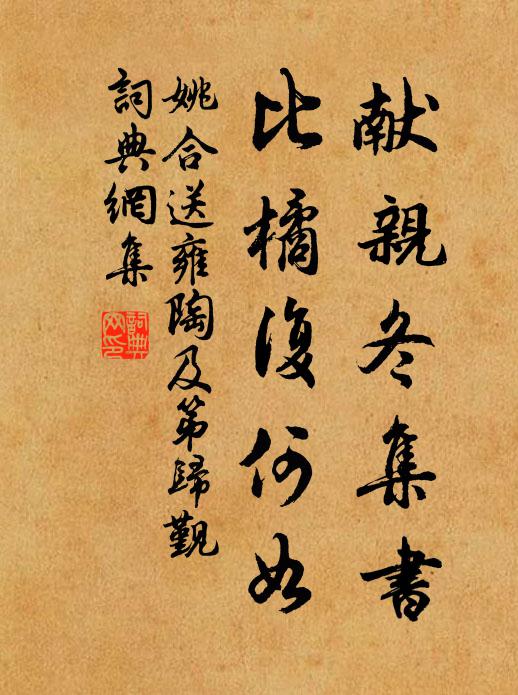 献親冬集書
比橘復何如
姚合送雍陶及第歸覲
詞典網集
詞典網印